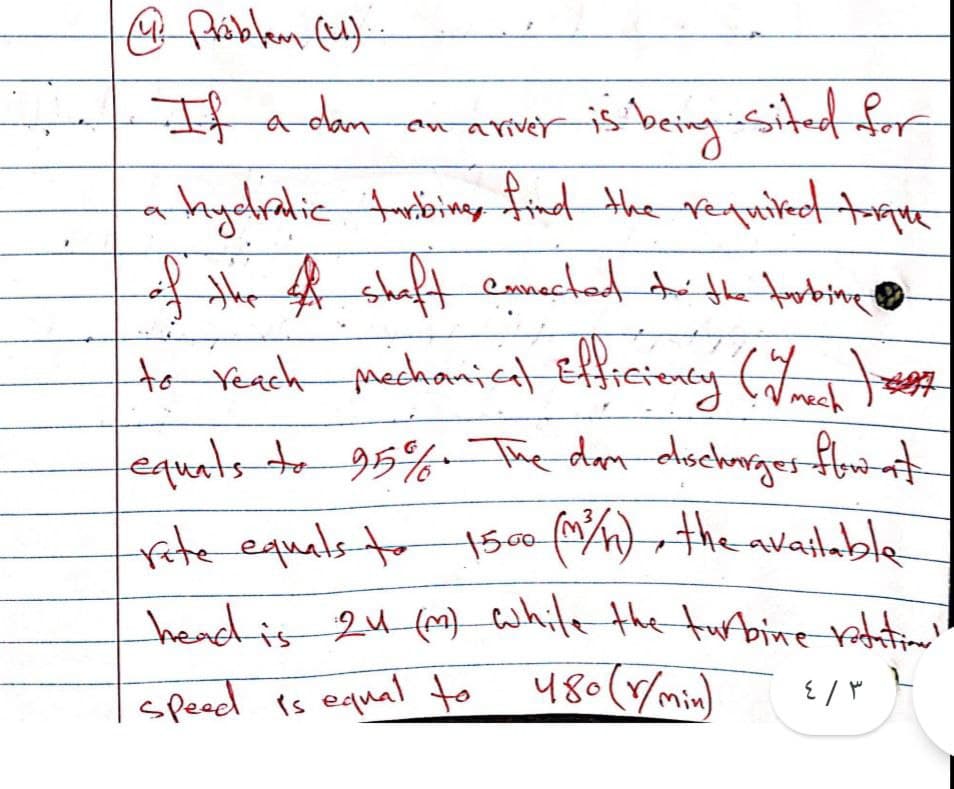 ④ Problem (4)
If a dam on a river is being sited for
a hydralic turbine, find the required torque
of the shaft connected to the turbine
to reach mechanical Efficiency (η mech)
equals to 95%. The dam discharges flow at
rate equals to 1500 (m³/h), the available
head is 24 (m) while the turbine rotational
speed is equal to 480 (r/min)
٤ / ٣